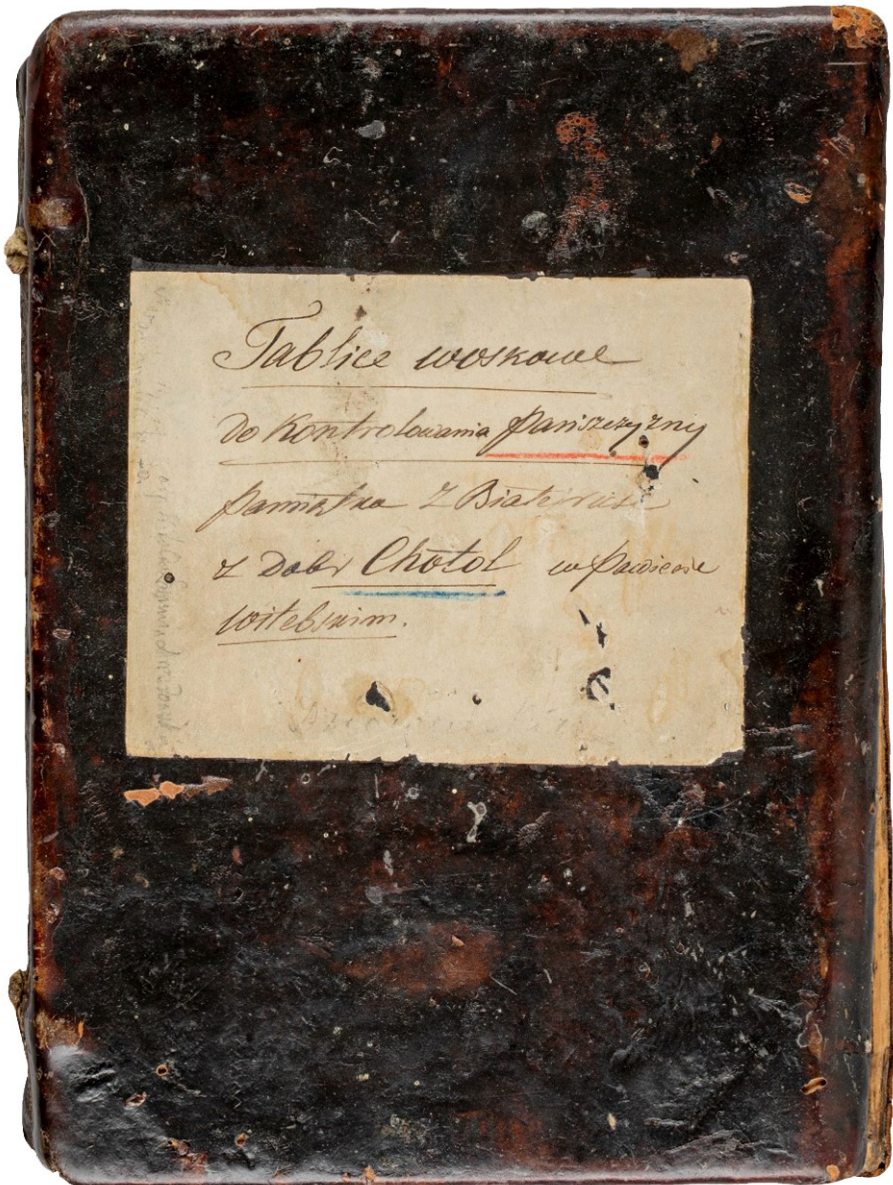 Tablice woskowe
do Kontrolowania pańszczyzny
pamiątka z Białejrusi
z Dobr Chotol w powiecie
witebskim.